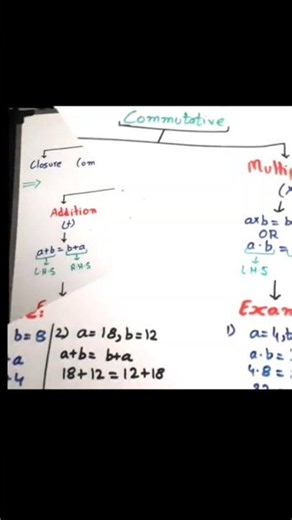 Commutative
Closure Com
Multip
⇒
Addition
(+)
a×b = b
OR
a+b = b+a
a·b =
L.H.S R.H.S
L.H.S
E:
Exam
b=8 2) a=18, b=12
1) a=4,
+a a+b = b+a
a·b =
+4 18+12 = 12+18
4·8 =